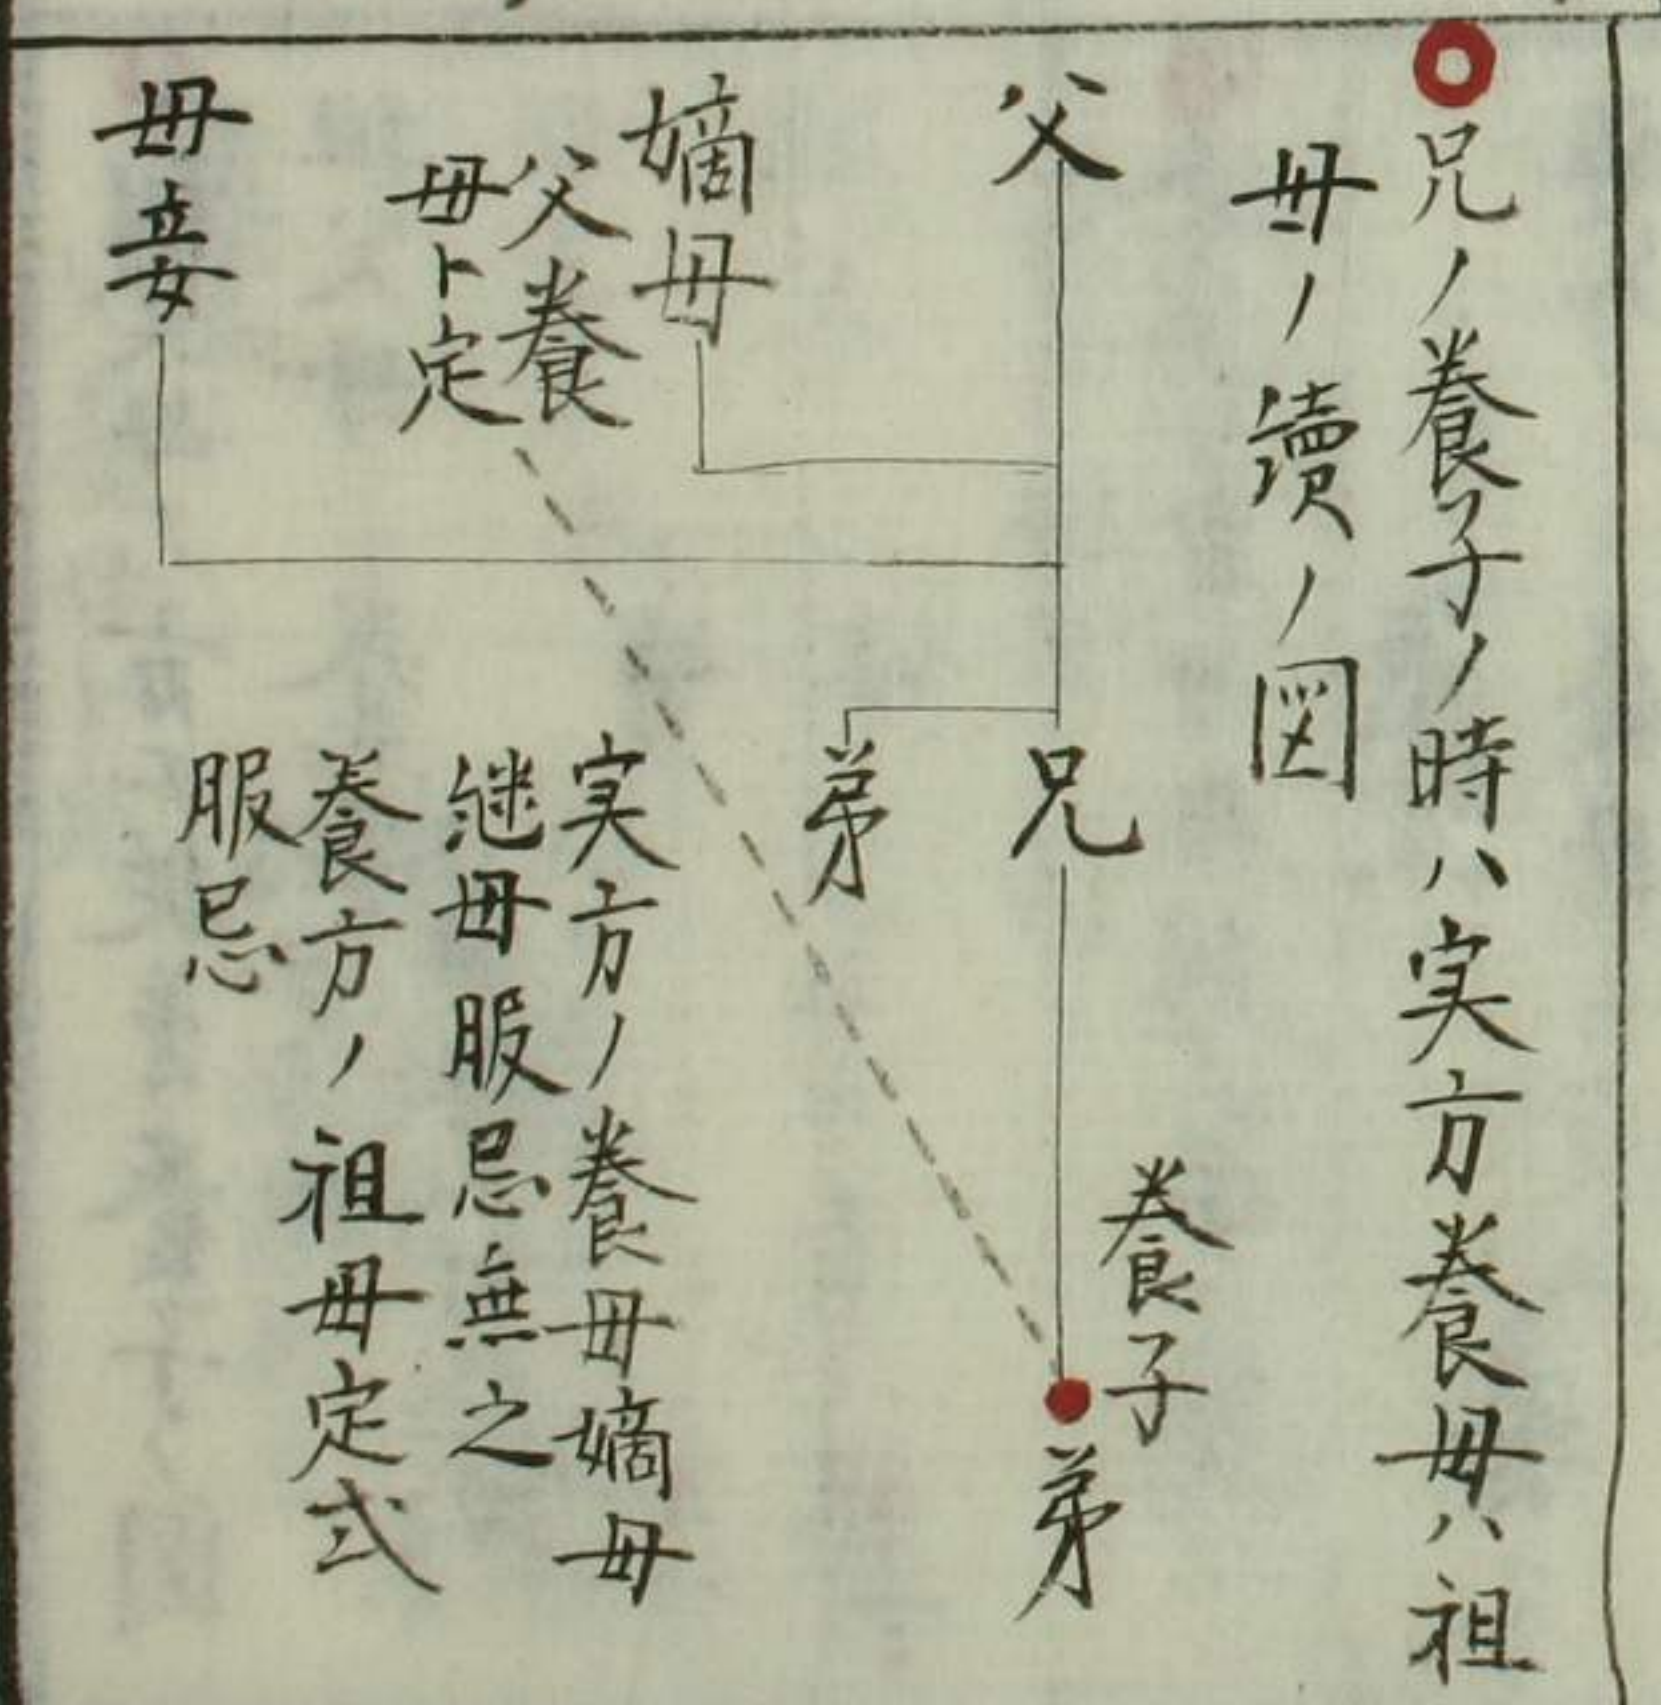 兄ノ養子ノ時ハ実方養母ハ祖
母ノ續ノ図
父
嫡母
父養
母ト定
母妾
兄
弟
養子
弟
実方ノ養母嫡母
継母服忌無之
養方ノ祖母定式
服忌